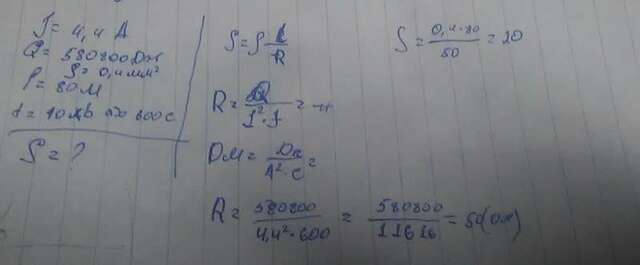 J = 4,4 А
Q = 580800 Дж
ρ = 0,4 мм²
ℓ = 80 м
t = 10 600 с
S = ?
S = ρ ℓ/R
R = Q/J²·t =
Ом = Дж/А²·с =
R = 580800/4,4²·600 = 580800/11616 = 50(Ом)
S = 0,4·80/50 = 20